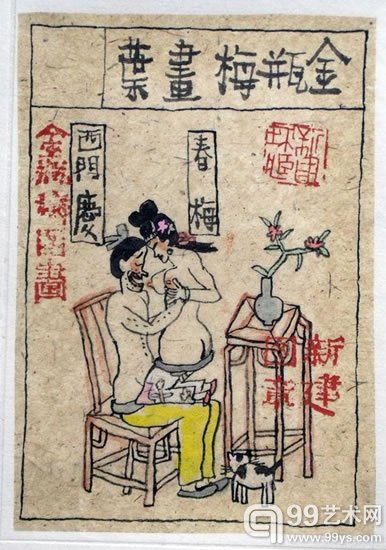 金瓶梅畫葉
春梅
西門慶
金瓶梅圖畫
新建
99艺术网
www.99ys.com